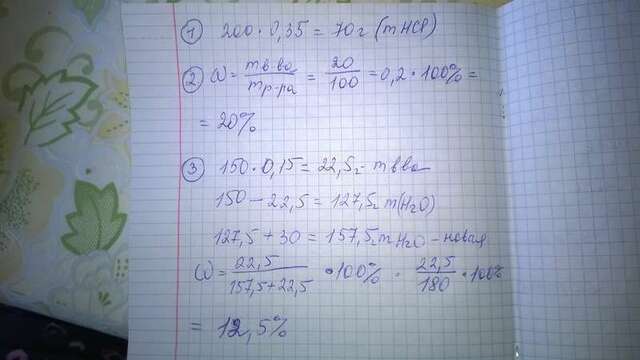 ① 200·0,35=70г (m HCl)
② ω = m в-ва / m р-ра = 20/100 = 0,2·100% =
= 20%
③ 150·0,15=22,5г - m вва
150 - 22,5 = 127,5г m(H2O)
127,5 + 30 = 157,5г m H2O - новая
ω = 22,5 / 157,5+22,5 · 100% = 22,5/180 · 100%
= 12,5%